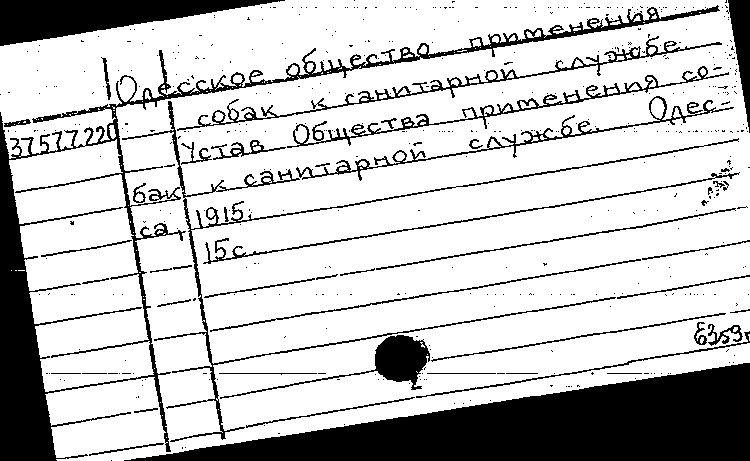 Одесское общество применения
собак к санитарной службе
37.577.220
Устав Общества применения со-
бак к санитарной службе. Одес-
са, 1915.
15с.